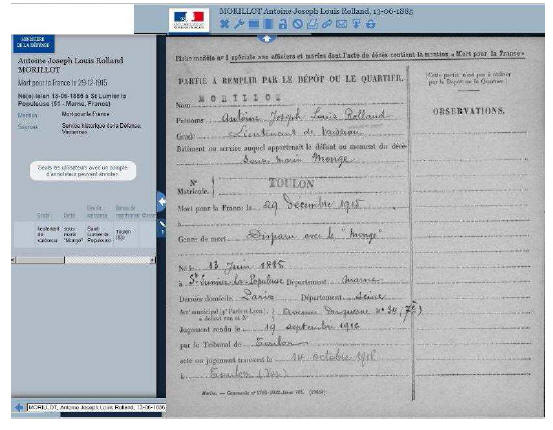 MORILLOT Antoine Joseph Louis Rolland, 13-06-1885
MINISTÈRE
DE LA DÉFENSE
Antoine Joseph Louis Rolland
MORILLOT
Mort pour la France le 29-12-1915
Né(e) le/en 13-06-1885 à St Lumier la
Populeuse (51 - Marne, France)
Mention Mort pour la France
Sources Service historique de la Défense,
Vincennes
Seuls les utilisateurs avec un compte
d'annotateur peuvent annoter.
Grade Unité Lieu de naissance
lieutenant de vaisseau sous marin "Monge" Saint Lumier la Populeuse Toulon
MORILLOT, Antoine Joseph Louis Rolland, 13-06-1885
Fiche modèle n° 1 spéciale aux officiers et marins dont l'acte de décès contient la mention « Mort pour la France »
PARTIE A REMPLIR PAR LE DÉPÔT OU LE QUARTIER.
Nom MORILLOT
Prénoms Antoine Joseph Louis Rolland
Grade Lieutenant de vaisseau
Bâtiment ou service auquel appartenait le défunt au moment du décès
Sous-marin Monge
N°
Matricule. TOULON
Mort pour la France le 29 décembre 1915
à
Genre de mort Disparu avec le "Monge"
Né le 13 Juin 1885
à St Lumier la Populeuse Département Marne
Dernier domicile Paris Département Seine
Jugement rendu le 19 septembre 1916
par le Tribunal de Toulon
acte ou jugement transcrit le 14 octobre 1916
à Toulon (Var)
Cette partie n'est pas à utiliser
par le Dépôt ou le Quartier.
OBSERVATIONS.